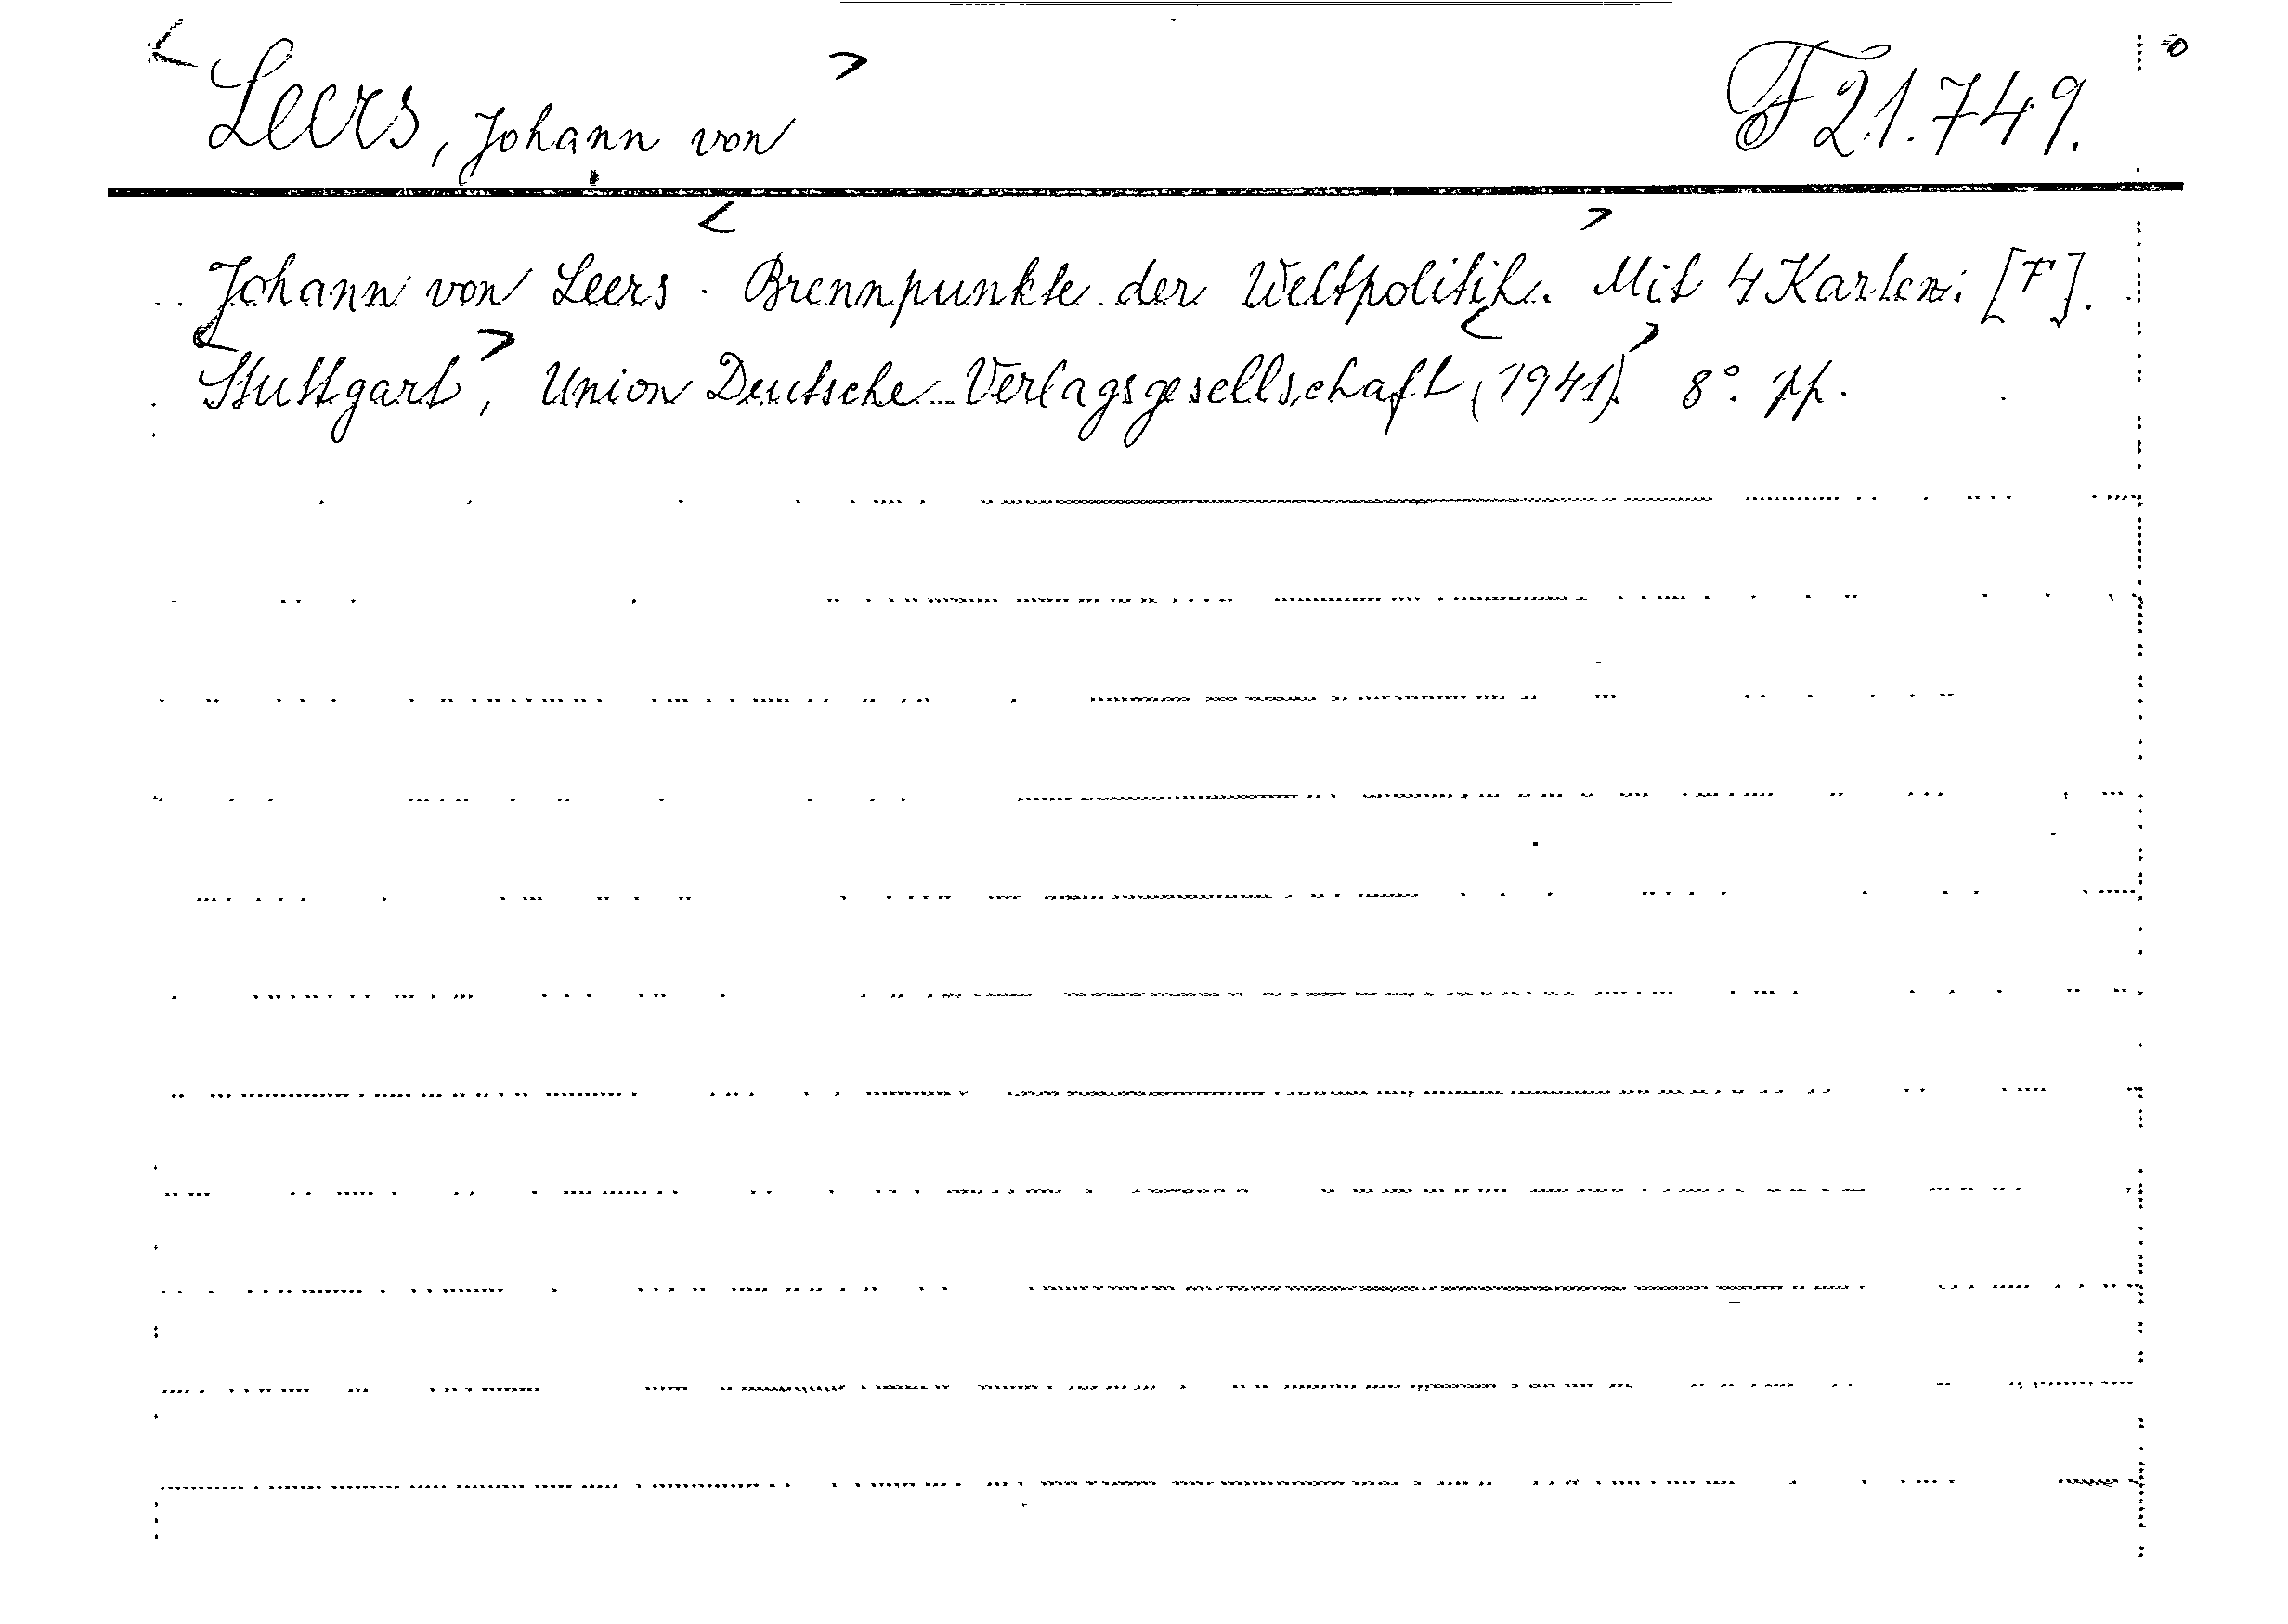 Leers, Johann von F 21.749.
Johann von Leers. Brennpunkte der Weltpolitik. Mit 4 Karten. [F].
Stuttgart, Union Deutsche Verlagsgesellschaft (1941). 8°. pp.